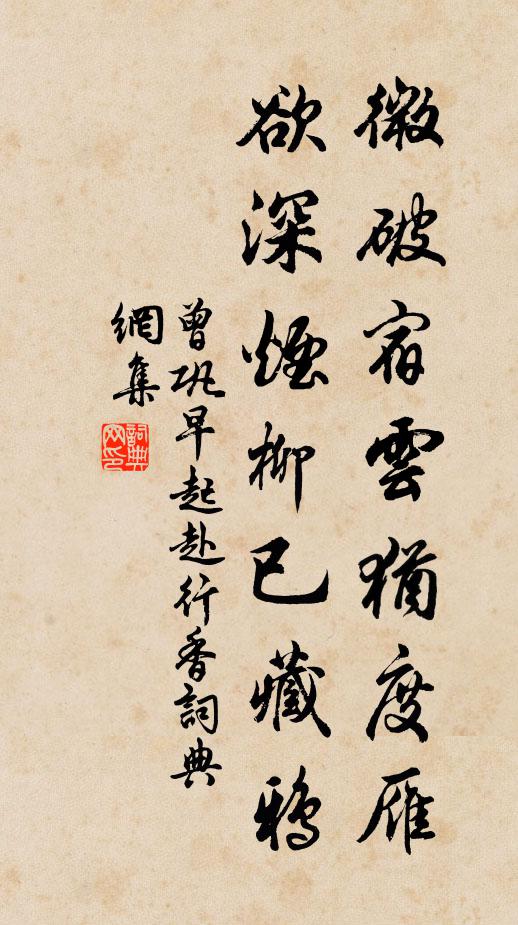 微破宿雲猶度雁
欲深煙柳已藏鴉
曾巩早起赴行香詞典
網集
詞典
网印